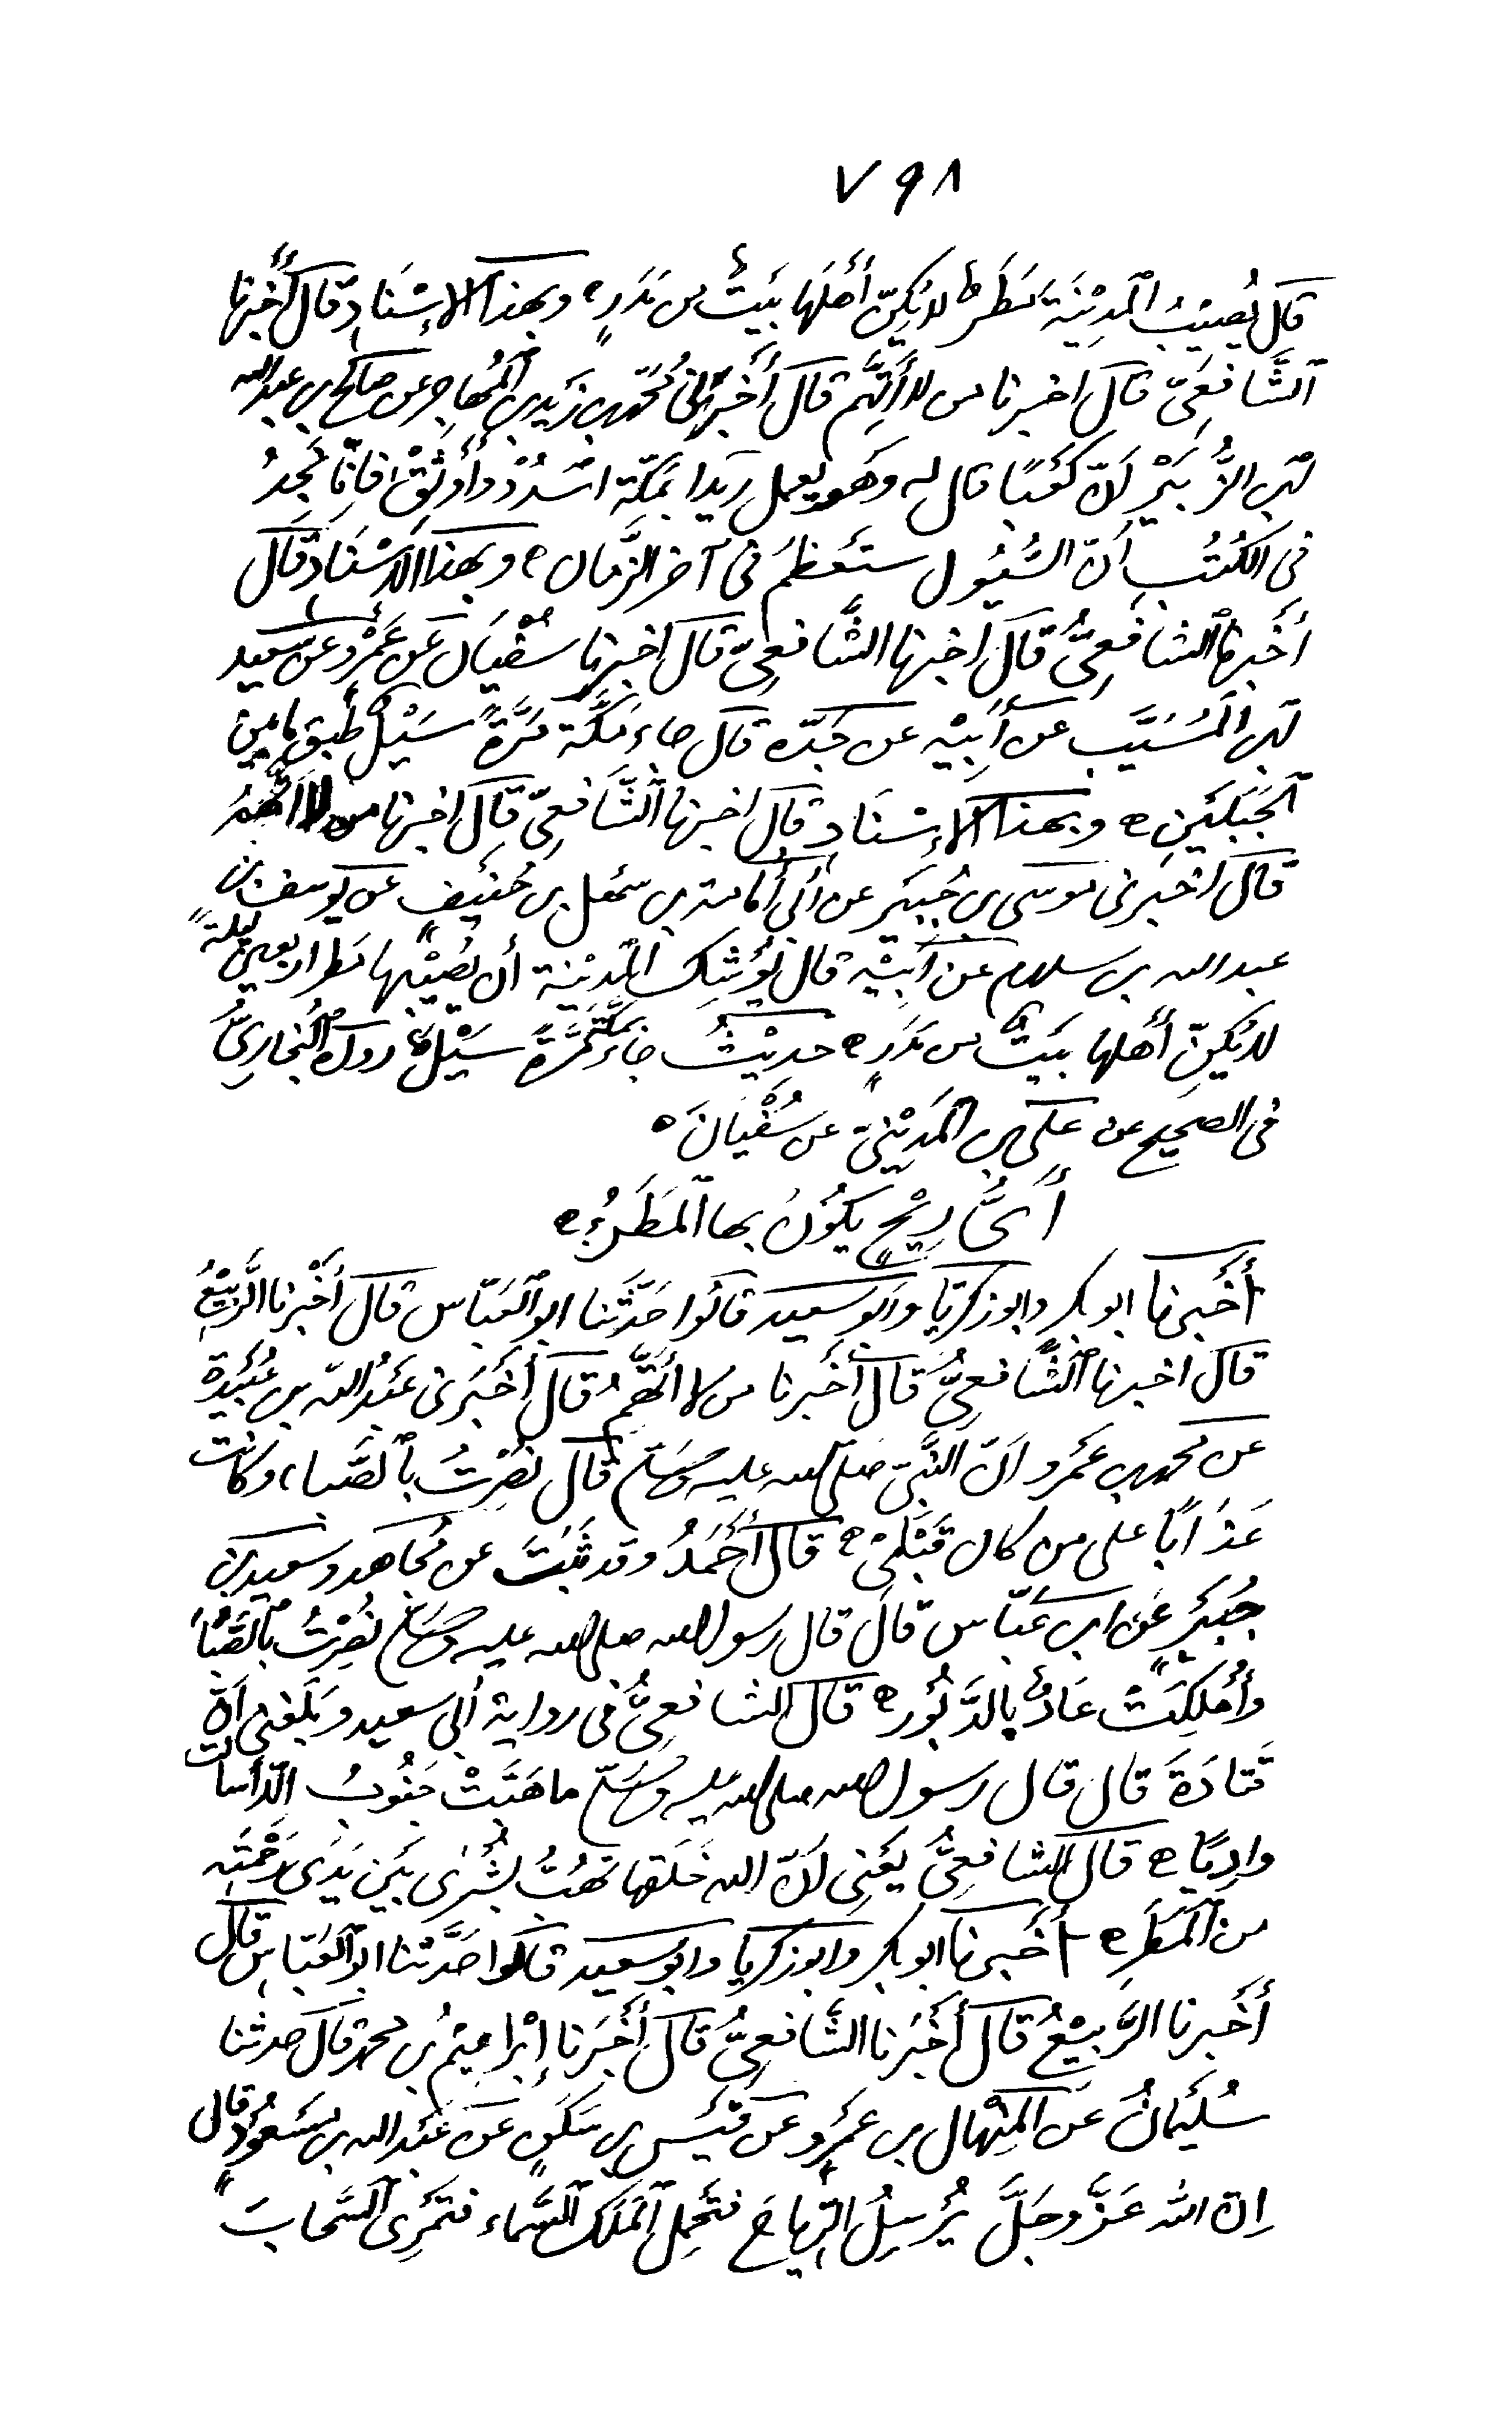 ٧٩٨
قال يُصِيْبُ المَدِيْنَةَ مَطَرٌ لا يُكِنّ أَهْلَها بَيتٌ من مَدَرٍ ه وبهذا الإِسْنَادِ قال أخبرنا
الشَّافِعَىّ قال اخبرنا من لا أَتَّهِم قال أَخبرني مُحَمّد بن زَيد بن المُهاجِر عن صالح بن عبد الله
بن الزُّبَيْرِ أَنّ كَعْبًا قال له وَهَو يعمل رِيَدا بمَكّة اشْدُدْ وأَوْثِقْ فإنّا نَجِدُ
فى الكُتُبِ أَنّ السُّيُول ستَعظمُ فى آخر الزَّمان ه وبهذا الإسْنَادِ قَال
أخْبرنا الشافِعىُّ قال اخبرنا الشَّافعِىّ قال اخبرنا سُفْيَان عَن عَمْرٍو عن سعيد
بن المُسَيَّب عَن أَبِيْه عن جَدّه قال جاء مَكَّة مَرَّةً سَيْلٌ طبق ما بين
الجَبَلَيَنِ ه وبهذا الإسْنَادِ قال اخبرنا الشَّافِعِىّ قال اخبرنا من لا اتّهمُ
قال اخبَرنى موسى بن جُبَيَر عن أبى أُمامة بن سَهْل بن حُنَيفٍ عن يُوسف بن
عبد الله بن سلام عن أَبِيْه قال يُوْشِك المَدِيْنة أن يُصَيْبها مَطر اربعين ليلةً
لا يُكِنّ أَهلها بيَتٌ من مَدَرٍ ه حدِيْثُ جاءَ مكّة مَرَّةً سَيْلٌ رواه البُخارِىُّ
فى الصحيح عن على بن المَدِيْنىّ عن سُفْيَانَ ه
أَىُّ رِيْحٍ يَكوُنُ بها المَطَرُ ه
أخَبرنا ابو بكر وابو زكريّا وابو سعيد قالُوا حَدّثَنا ابو العَبّاس قال أخْبرنا الرَّبيْعُ
قال اخبرنا الشَّافعِىُّ قال أخَبرنا من لا اتّهِمُ قال أخبَرنى عَبْدُ الله بن عُبَيْدة
عن محمد بن عَمْرو انّ النّبىّ صلى الله عليه وسَلّم قال نُصِرْتُ بالصَّباء وكانت
عَذابًا على من كان قَبْلِىْ ه قال أحَمَدُ وقد ثَبَتَ عن مُجاهد وسعيد بن
جُبَيرٍ عَن ابن عَبّاس قالَ قال رسول الله صلى الله عليه وسَلّم نُصِرْتُ بالصَّبَا
وأُهْلِكَتْ عَادٌ بالدَّبُور ه قال الشافِعىُّ فى رواية أبى سعيد وبَلَغنى أنّ
قَتادَةَ قال قال رسول الله صلى الله عليه وسَلّم ما هَبَّتْ جَنُوبٌ إلا أسالت
وادِيًا ه قال الشافِعِىُّ يَعْنِى أنّ الله خَلَقها تَهُبُّ بُشْرَى بَيَن يَدَى رَحْمَتِه
من المَطَرِ ه أخَبرنا ابو بكر وابو زكريا وابو سعيد قالُوا حَدَّثنا ابو العَبّاس قال
أخَبرنا الرَّبيْعُ قال أخَبَرنا الشَّافِعِىُّ قال أخَبَرنا إبْراهيْمُ بن محمد قال حدثنا
سُلَيمانُ عَن المِنْهال بن عَمْرٍو عن قَيْس بن سَكَنٍ عَن عَبْد الله بن مَسْعُوْدٍ قال
إنّ الله عَزَّ وجَلَّ يُرْسِلُ الرِّياحَ فتحْمِل المَلَك السَّماء فتَمْرِى السَّحابَ